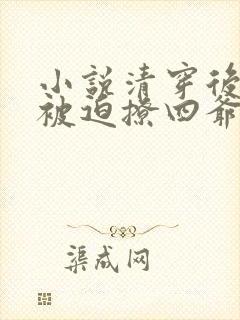 小説清穿後
被迫撩四爺
渠成网